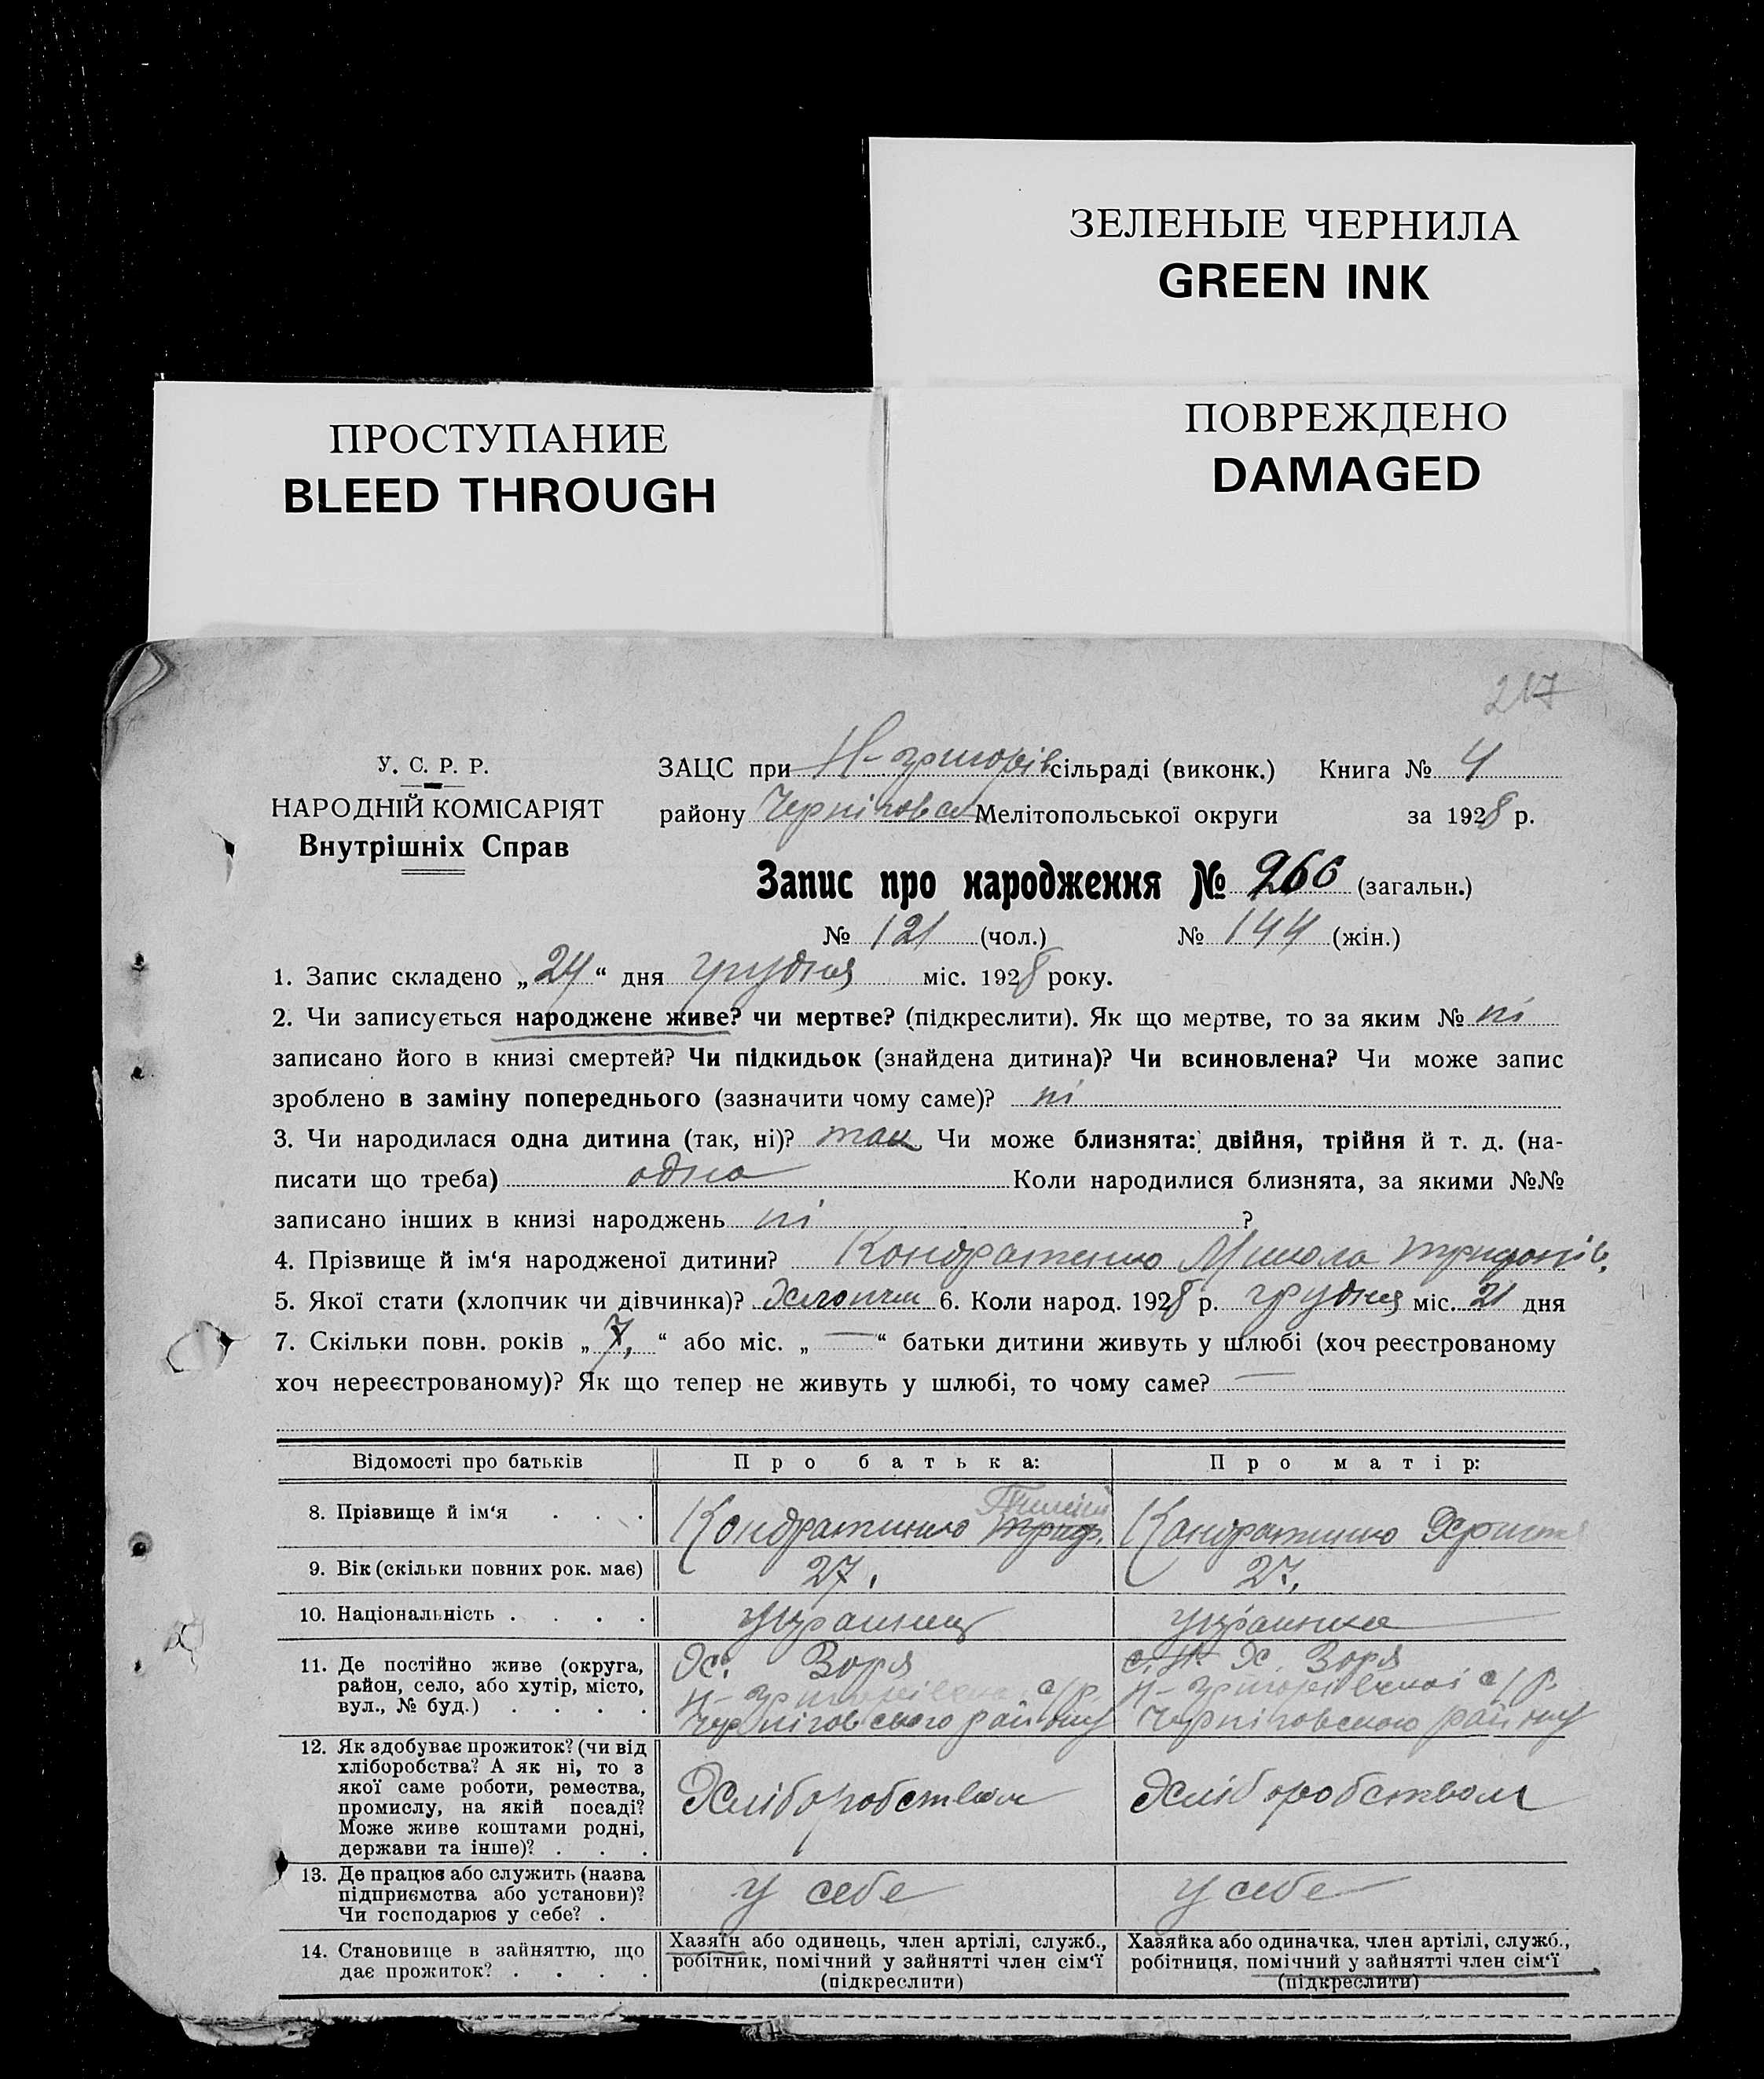 ЗЕЛЕНЫЕ ЧЕРНИЛА
GREEN INK
ПРОСТУПАНИЕ
BLEED THROUGH
ПОВРЕЖДЕНО
DAMAGED
217
У. С. Р. Р.
НАРОДНІЙ КОМІСАРІЯТ
Внутрішніх Справ
ЗАЦС при Н-григорів сільраді (виконк.) Книга № 4
району Черніговськ Мелітопольської округи за 1928 р.
Запис про народження № 266 (загальн.)
№ 121 (чол.) № 144 (жін.)
1. Запис складено „24“ дня грудня міс. 1928 року.
2. Чи записується народжене живе? чи мертве? (підкреслити). Як що мертве, то за яким № ні
записано його в книзі смертей? Чи підкидьок (знайдена дитина)? Чи всиновлена? Чи може запис
зроблено в заміну попереднього (зазначити чому саме)? ні
3. Чи народилася одна дитина (так, ні)? так Чи може близнята: двійня, трійня й т. д. (на-
писати що треба) одна Коли народилися близнята, за якими №№
записано інших в книзі народжень ні ?
4. Прізвище й ім‘я народженої дитини? Кондратенко Микола трифонів.
5. Якої стати (хлопчик чи дівчинка)? Хлопчик 6. Коли народ. 1928 р. грудня міс. 21 дня
7. Скільки повн. років „7,“ або міс. „—“ батьки дитини живуть у шлюбі (хоч реєстрованому
хоч нереєстрованому)? Як що тепер не живуть у шлюбі, то чому саме? —
Відомості про батьків Про батька: Про матір:
8. Прізвище й ім‘я . . . Кондратенко триф. Кондратенко Христя
9. Вік (скільки повних рок. має) 27. 27.
10. Національність . . . . Українец українка
11. Де постійно живе (округа,
район, село, або хутір, місто,
вул., № буд.) . . . .
Х. Зоря
Н-григорівської с/р.
Черніговського району
с. Н. Х. Зоря
Н-григорівської с/р.
Черніговського району
12. Як здобуває прожиток? (чи від
хліборобства? А як ні, то з
якої саме роботи, ремества,
промислу, на якій посаді?
Може живе коштами родні,
держави та інше)? . . .
Хліборобством Хліборобством
13. Де працює або служить (назва
підприємства або установи)?
Чи господарює у себе? .
у себе у себе
14. Становище в зайняттю, що
дає прожиток? . . . .
Хазяїн або одинець, член артілі, служб.,
робітник, помічний у зайнятті член сім‘ї
(підкреслити)
Хазяйка або одиначка, член артілі, служб.,
робітниця, помічний у зайнятті член сім‘ї
(підкреслити)